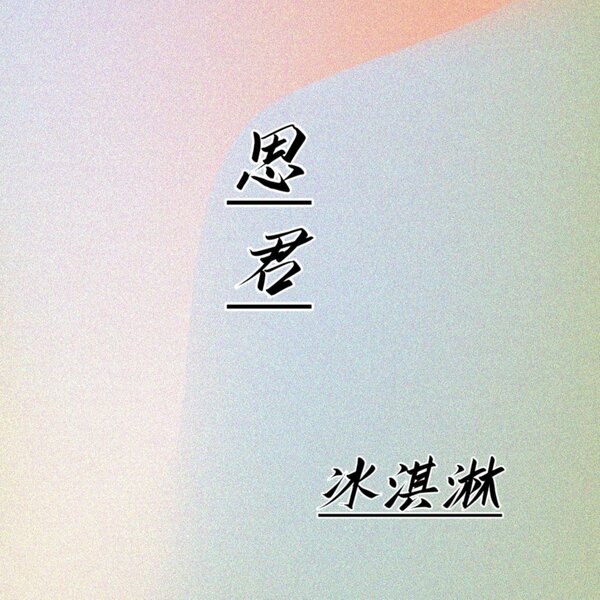 恩
君
冰淇淋